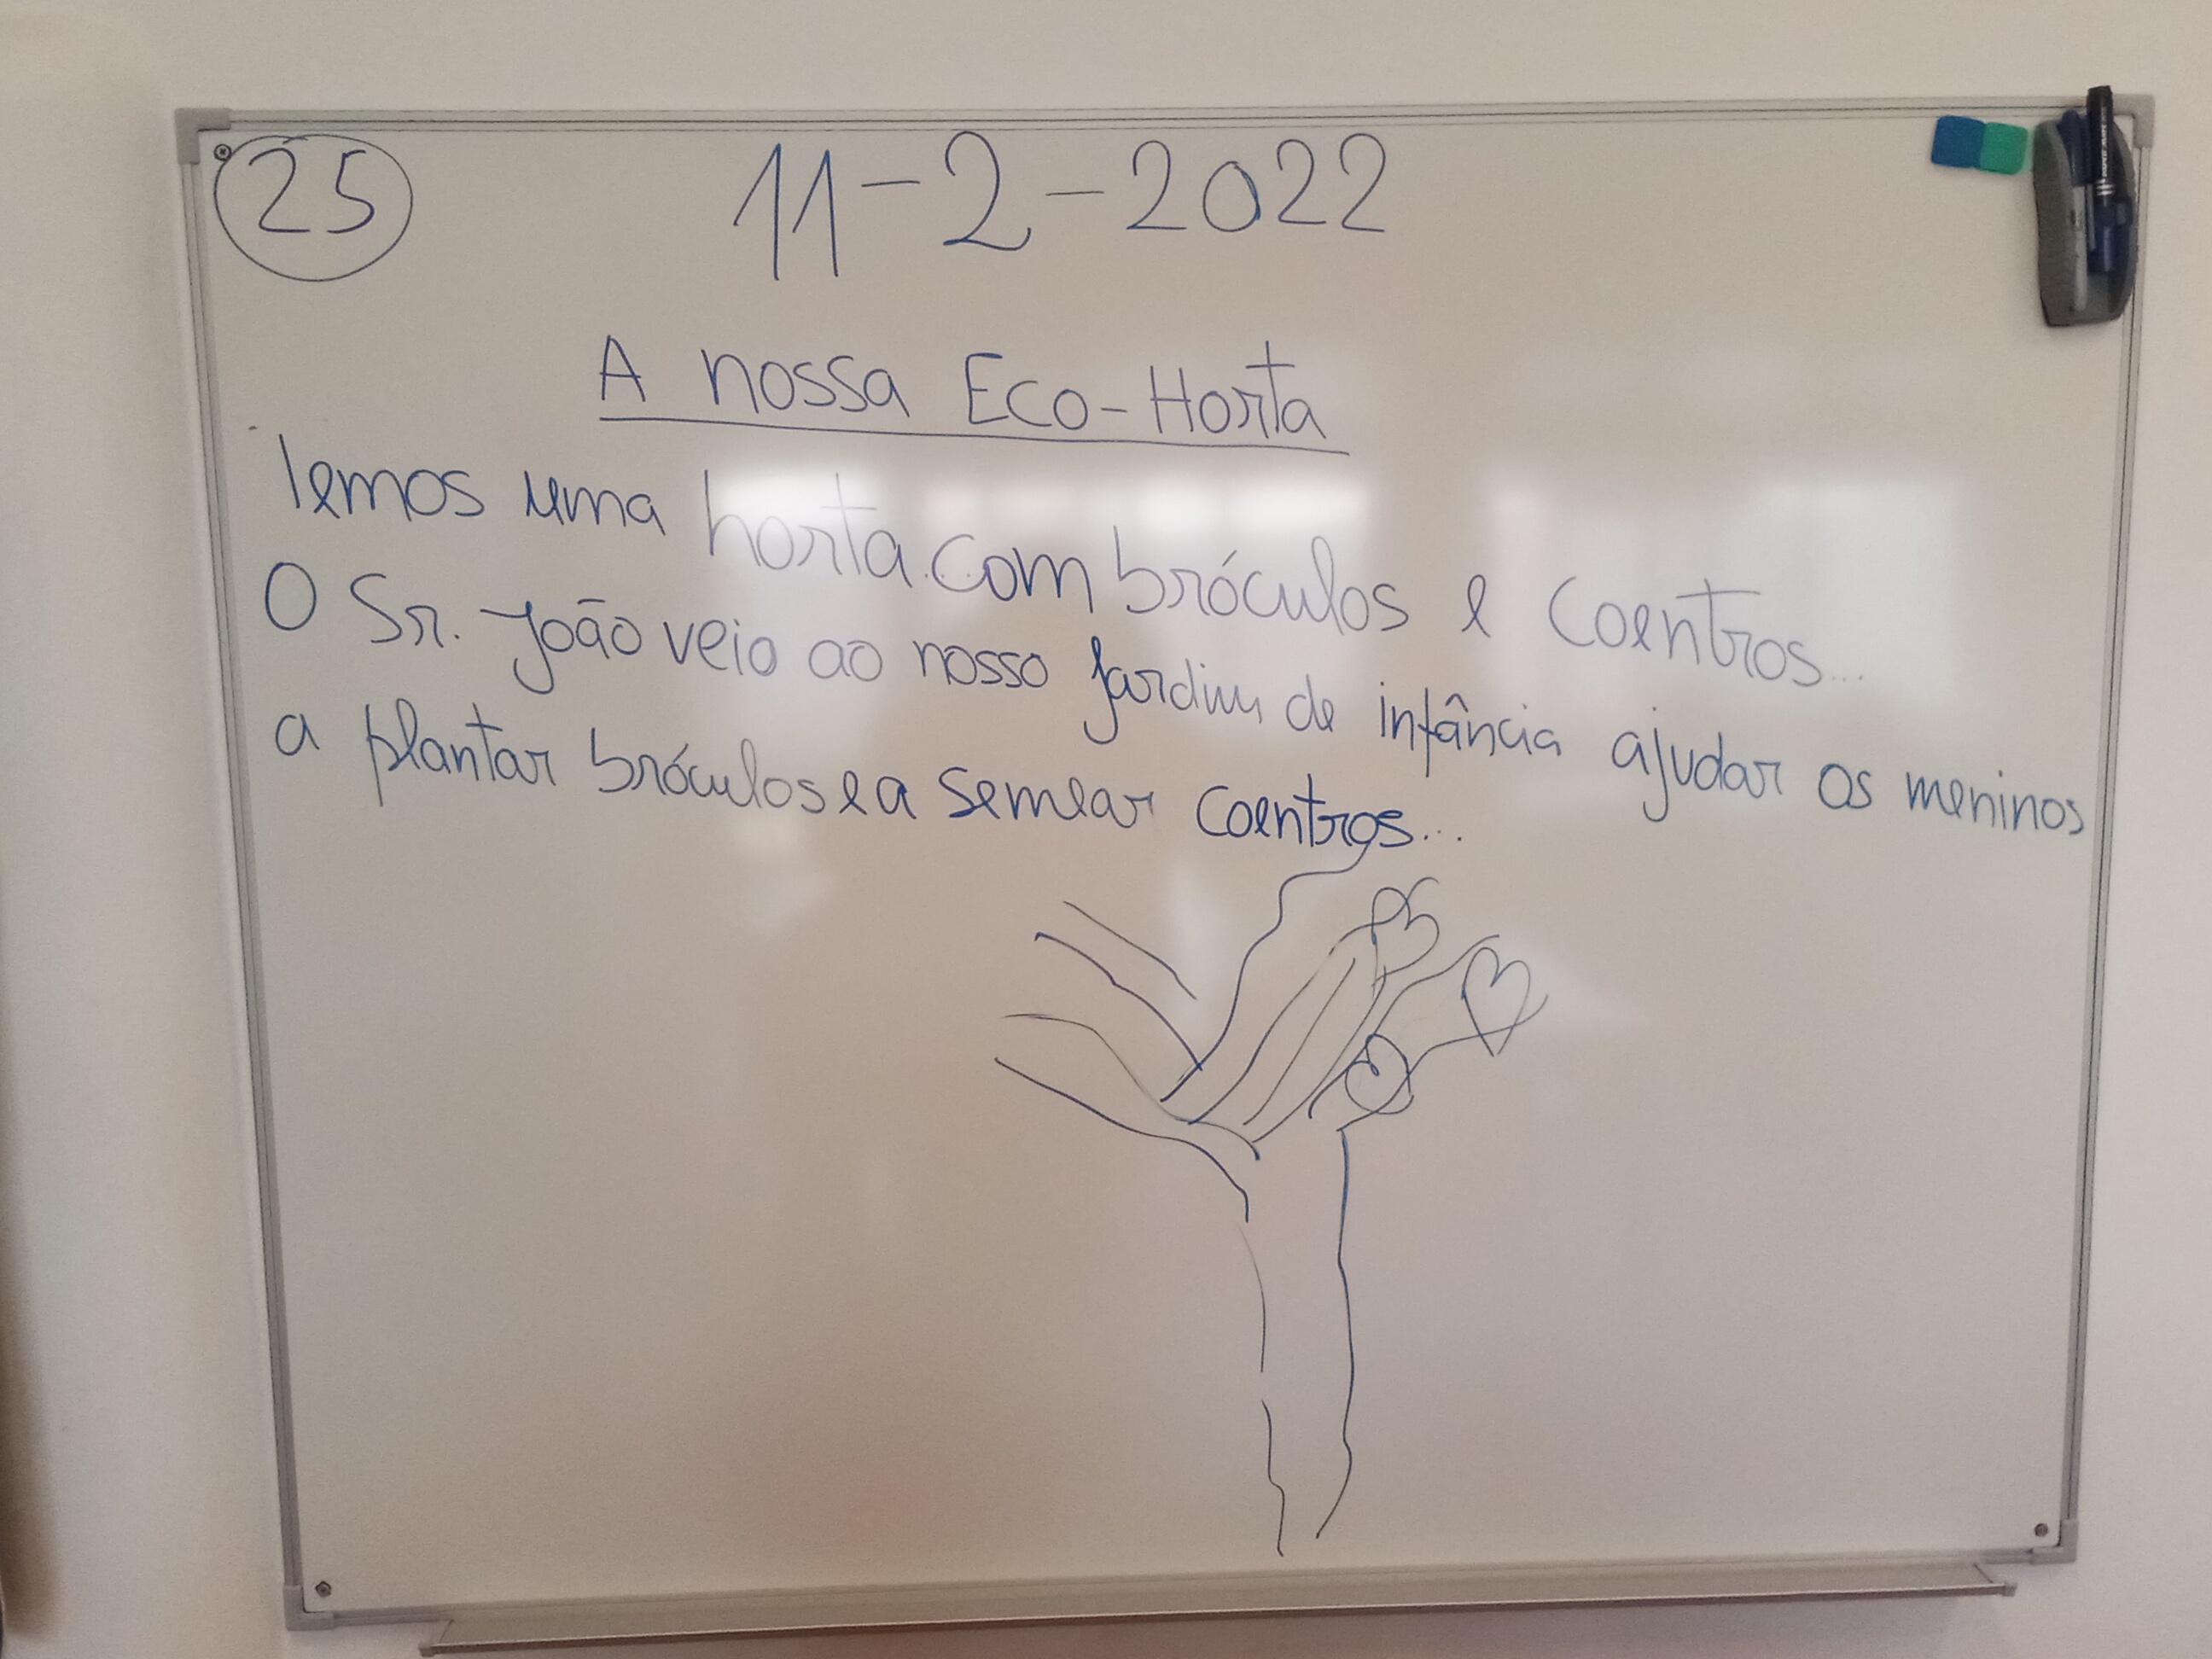 25
11-2-2022
A nossa Eco-Horta
Temos uma horta com bróculos e coentros...
O Sr. João veio ao nosso jardim de infância ajudar os meninos
a plantar bróculos e a semear coentros...